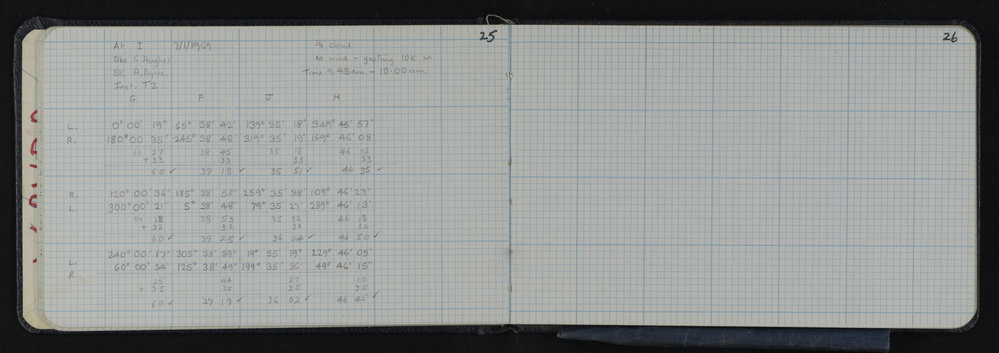 25
26
At I 7/1/1969 7/8 cloud
Obs G. Hughes No wind - gusting 10K W.
Bk A. Ayres. Time 9.45am - 10.00am
Inst. T2
G F J H
L. 0° 00' 19" 65° 38' 42" 139° 35' 18" 349° 45' 57"
R. 180° 00 35" 245° 38' 48" 319° 35' 19" 169° 46' 08
00 27 38 45 35 18 46 02
+ 33 33 33 33
60 ✓ 39 18 ✓ 35 51 ✓ 46 35 ✓
R. 120° 00' 36" 185° 38' 58" 259° 35' 38" 109° 46' 23"
L. 300° 00' 21" 5° 38' 48" 79° 35' 27" 289° 46' 13"
00 28 38 53 35 32 46 18
+ 32 32 32 32
60 ✓ 39 25 ✓ 36 04 ✓ 46 50 ✓
L. 240° 00' 17" 305° 38' 39" 19° 35' 19" 229° 46' 05"
R. 60° 00' 34" 125° 38' 49" 199° 35' 36" 49° 46' 15"
25 44 27 10
+ 35 35 35 35
60 ✓ 39 19 ✓ 36 02 ✓ 46 45 ✓